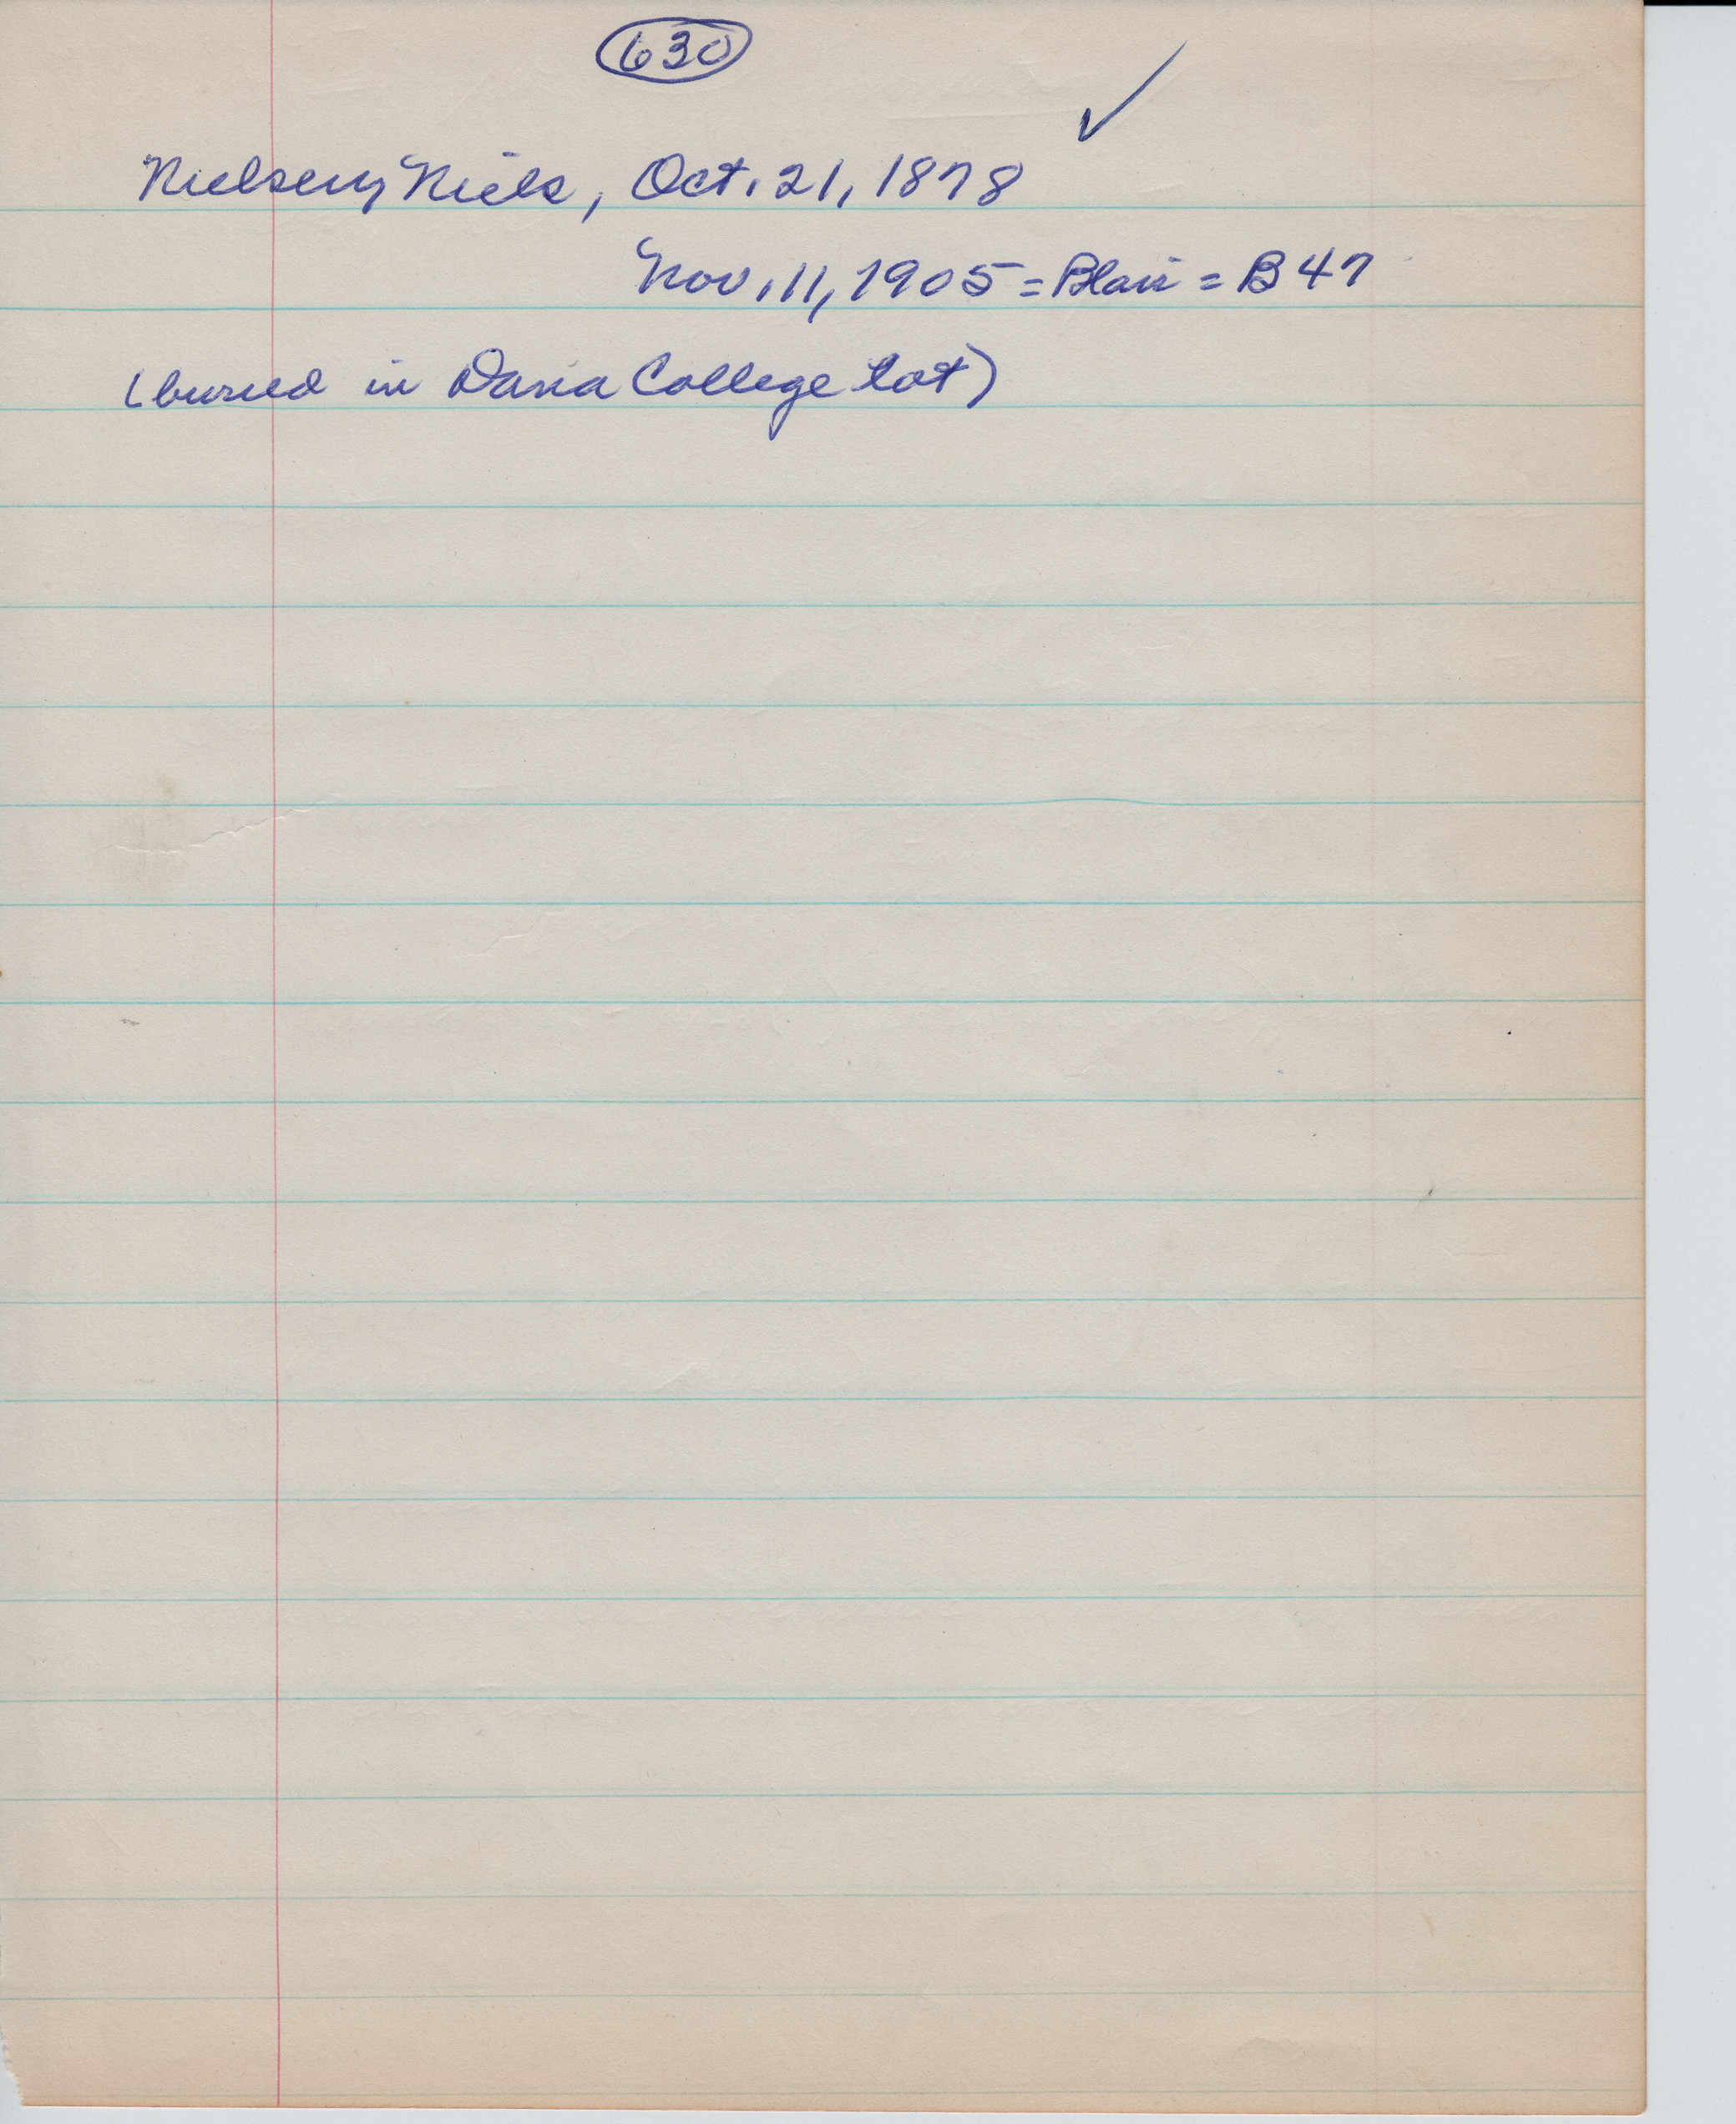 630
Nielsen, Niels, Oct. 21, 1878
Nov. 11, 1905 = Blair = B 47
(buried in Dana College lot)